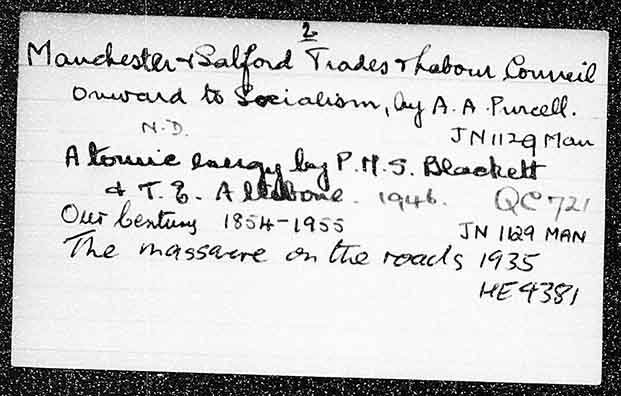 2
Manchester & Salford Trades & Labour Council
Onward to Socialism, by A. A. Purcell.
N.D.
JN1129 Man
Atomic energy by P.M.S. Blackett
& T. E. Allibone. 1946. QC 721
Our Century 1854-1955 JN 1129 MAN
The massacre on the roads 1935
HE4381